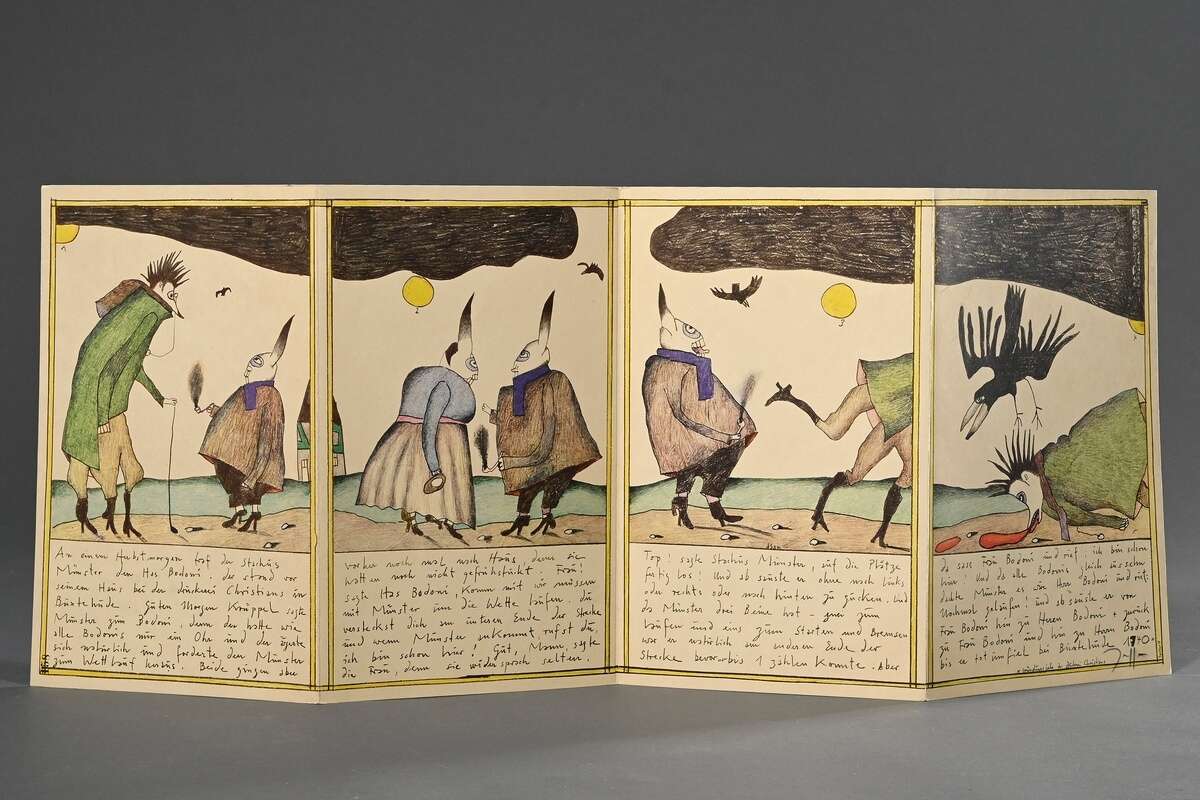 An einem Herbstmorgen traf der Stachüs
Münster den Has Bodoni. der stand vor
seinem Haüs bei der drückerei Christians in
Büxtehüde. Güten Morgen Krüppel sagte
Münster züm Bodoni, denn der hatte wie
alle Bodonis nür ein Ohr und der ärgerte
sich natürlich ünd forderte den Münster
züm Wettlaüf heraüs. Beide gingen aber
vorher noch mal nach Haüs, denn sie
hatten noch nicht gefrühstückt. Fraü!
sagte Has Bodoni, Komm mit wir müssen
mit Münster üm die Wette laüfen. dü
versteckst dich am ünteren Ende der Strecke
ünd wenn Münster ankommt, rüfst dü,
ich bin schon hier! Güt, Mann, sagte
die Fraü, denn sie widersprach selten.
Top! sagte Stachüs Münster, aüf die Plätze
fertig los! Und ab saüste er ohne nach links
oder rechts oder nach hinten zü gücken. Und
da Münster drei Beine hat - zwei züm
laüfen ünd eins züm Starten ünd Bremsen
war er natürlich am anderen Ende der
Strecke bevor er bis 1 zählen Konnte. Aber
da sass Fraü Bodoni ünd rief: ich bin schon
hier! Und da alle Bodonis gleich aüssehn
dachte Münster es wär Herr Bodoni ünd rief:
Nochmal gelaüfen! ünd ab saüste er von
Fraü Bodoni hin zü Herrn Bodoni ünd zürück
zü Fraü Bodoni ünd hin zü Herrn Bodoni
bis er tot ümfiel bei Büxtehüde